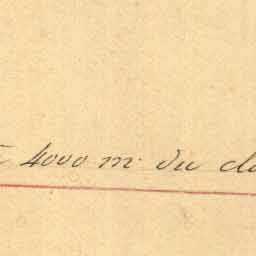 à 4000 m. du